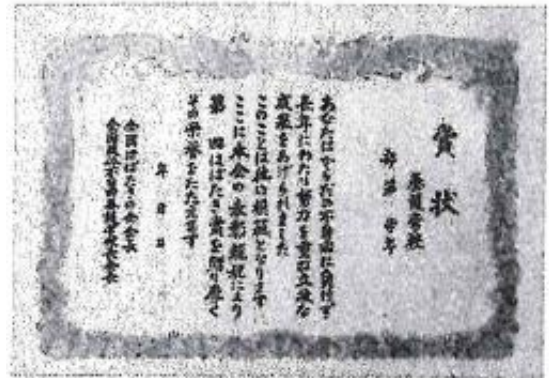 賞状
養護学校
部第 学年
あなたはからだの不自由に負けず
長年にわたり努力を重ね立派な
成果をあげられました
このことは他の模範となります
ここに本会の表彰規程により
第 回はばたき賞を贈り厚く
その栄誉をたたえます
年 月 日
全国はばたきの会会長